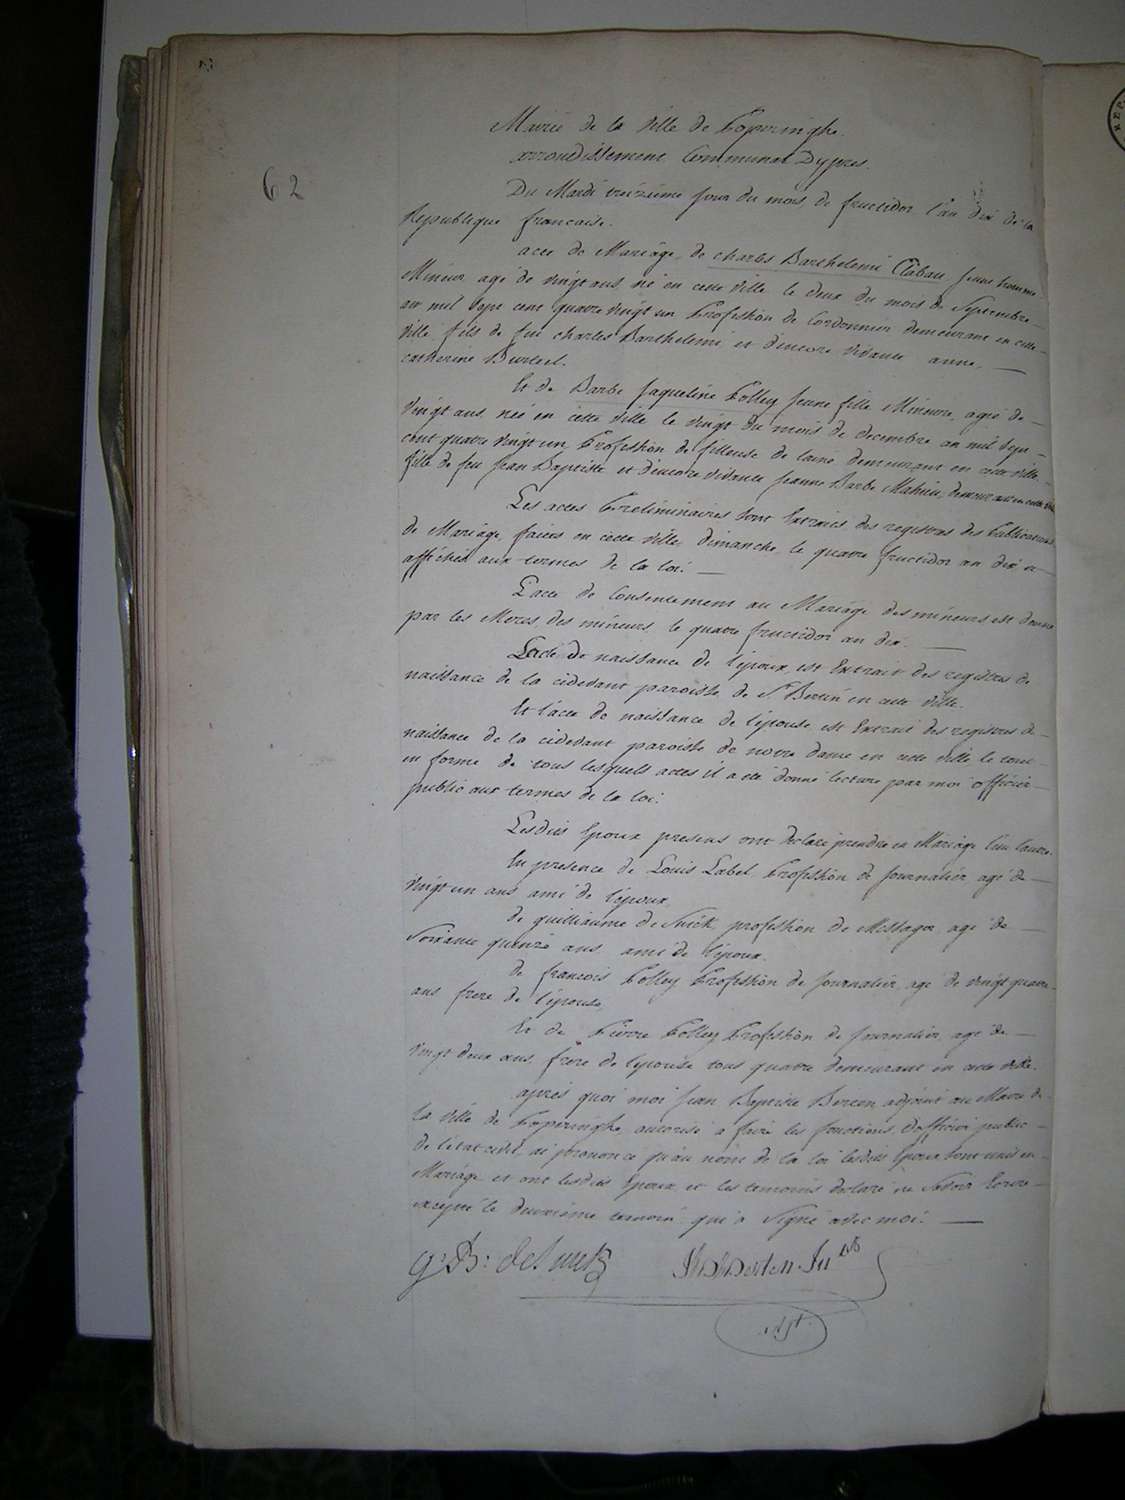 Mairie de la Ville de Poperinghe.
arrondissement Communal Dypres.
62
Du Mardi treizieme Jour du mois de fructidor l'an dix de la
Republique francaise.
acte de Mariage de charles Barthelemi Clabau Jeune homme
Mineur agé de vingt ans né en cette ville le deux du mois de Septembre
an mil sept cent quatre vingt un Profession de Cordonnier demeurant en cette
ville fils de feu charles Barthelemi et d'encore vivante anne
catherine
Et de Barbe Jaqueline Polley Jeune fille Mineure, agée de
vingt ans née en cette ville le vingt du mois de decembre an mil sept
cent quatre vingt un, Profession de filleuse de laine demeurant en cette ville
fille de feu Jean Baptiste et d'encore vivante Jeanne Barbe Mahieu, demeurant en cette ville
Les actes Preliminaires sont Extraits des registres des Publications
de Mariage, faites en cette ville, dimanche le quatre fructidor an dix et
affichés aux termes de la loi.
L'acte de Consentement au Mariage des mineurs est donné
par les Meres des mineurs, le quatre fructidor an dix.
L'acte de naissance de l'epoux est Extrait des registres de
naissance de la cidevant paroisse de St Bertin en cette ville.
Et l'acte de naissance de l'épouse est Extrait des registres de
naissance de la cidevant paroisse de notre dame en cette ville le tout
en forme de tous lesquels actes il a été donné lecture par moi officier
public aux termes de la loi.
Lesdits Epoux presens ont declaré prendre en Mariage l'un l'autre.
En presence de Louis Label Profession de Journalier, agé de
vingt un ans ami de l'époux
de guilliaume de profession de Messager, agé de
Soixante quinze ans ami de l'époux.
de francois Polley Profession de Journalier, agé de vingt quatre
ans frere de l'épouse,
Et de Pierre Polley Profession de Journalier, agé de
vingt deux ans frère de l'epouse tous quatre demeurant en cette ville.
après quoi moi Jean Baptiste Berten adjoint au Maire de
la ville de Poperinghe autorisé a faire les fonctions d'officier public
de l'état civil, ai prononcé qu'au nom de la loi lesdits Epoux sont unis en
Mariage et ont lesdits Epoux et les temoins declaré ne Savoir Ecrire
excepté le deuxième temoin qui a Signé avec moi.